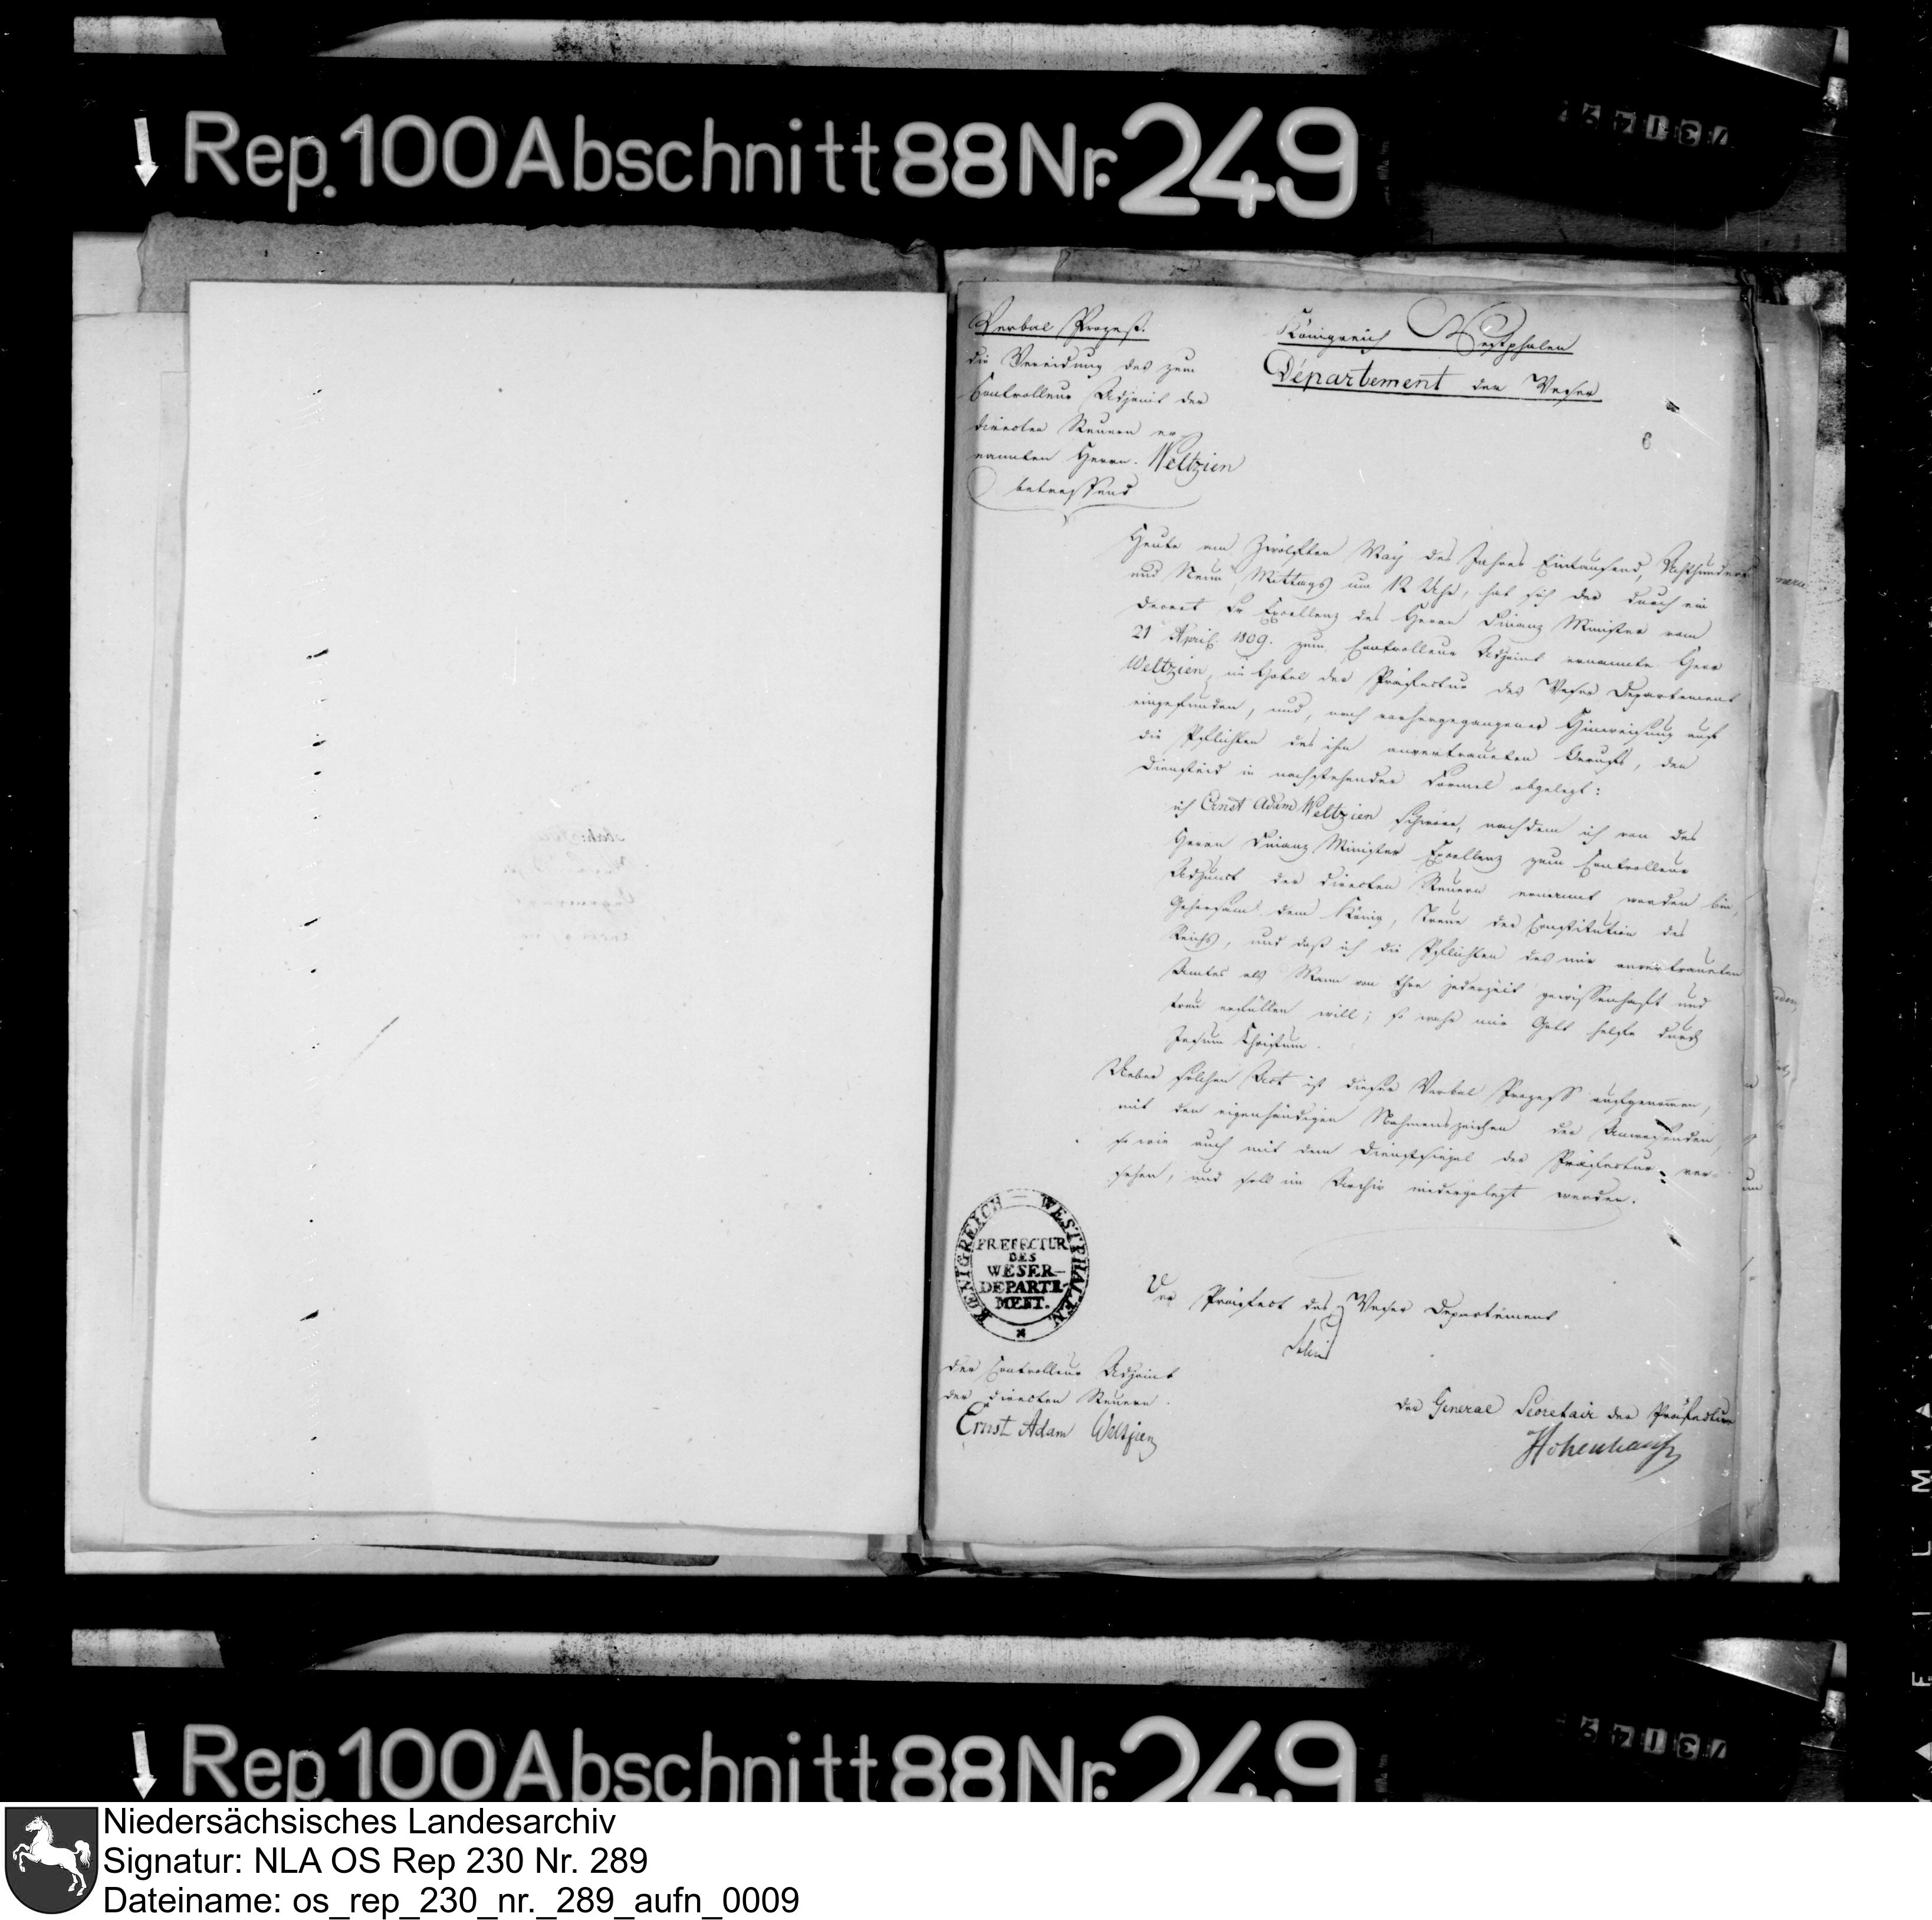 Rep. 100 Abschnitt 88 Nr. 249
Verbal Prozeß.
die Vereidung des zum
Controlleur Adjoint der
directen Steuern er
nannten Herrn. Weltzien
betreffend
Königreich Westphalen
Département der Weser
6
Heute am Zwölften May des Jahres Eintausend, Achthundert
und Neun Mittags um 12 Uhr, hat sich der durch ein
Decret Sr Excellenz des Herrn Finanz Minister vom
21 April 1809. zum Controlleur Adjoint ernannte Herr
Weltzien, im Hotel der Präfectur des Weser Departement
eingefunden, und, nach vorhergegangener Hinweisung auf
die Pflichten des ihm anvertrauten Berufs, den
Diensteid in nachstehender Formel abgelegt:
ich Ernst Adam Weltzien schwöre, nachdem ich von des
Herrn Finanz Minister Excellenz zum Controlleur
Adjunct der directen Steuern ernannt worden bin,
Gehorsam dem König, Treue der Constitution des
Reichs, und daß ich die Pflichten des mir anvertraueten
Amtes als Mann von Ehre jederzeit gewissenhaft und
treu erfüllen will; so wahr mir Gott helfe durch
Jesum Christum.
Ueber solchen Act ist dieser Verbal Prozess aufgenommen,
mit den eigenhändigen Nahmenszeichen der Anwesenden,
so wie auch mit dem Dienstsiegel der Präfectur ver-
sehen, und soll im Archiv niedergelegt werden.
KŒNIGREICH — WESTPHALEN
PREFECTUR
DES
WESER-
DEPARTE-
MENT.
Der Präfect des Weser Departement
der Controlleur Adjoint
der directen Steuern.
Ernst Adam Weltzien
der General Secretair der Präfectur
Hohenhausen
Rep. 100 Abschnitt 88 Nr. 249
Niedersächsisches Landesarchiv
Signatur: NLA OS Rep 230 Nr. 289
Dateiname: os_rep_230_nr._289_aufn_0009